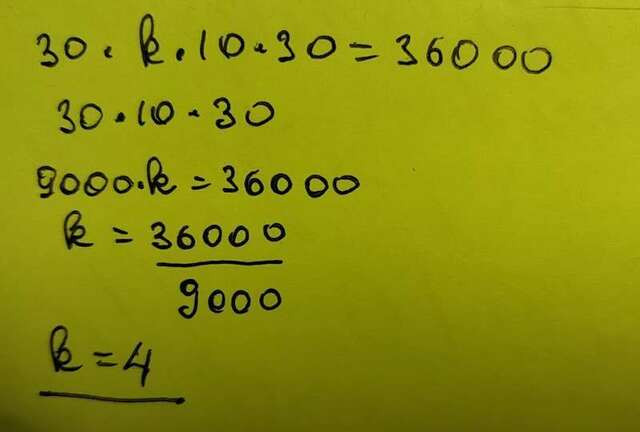 30 · k · 10 · 30 = 36000
30 · 10 · 30
9000 · k = 36000
k = 36000
9000
k = 4